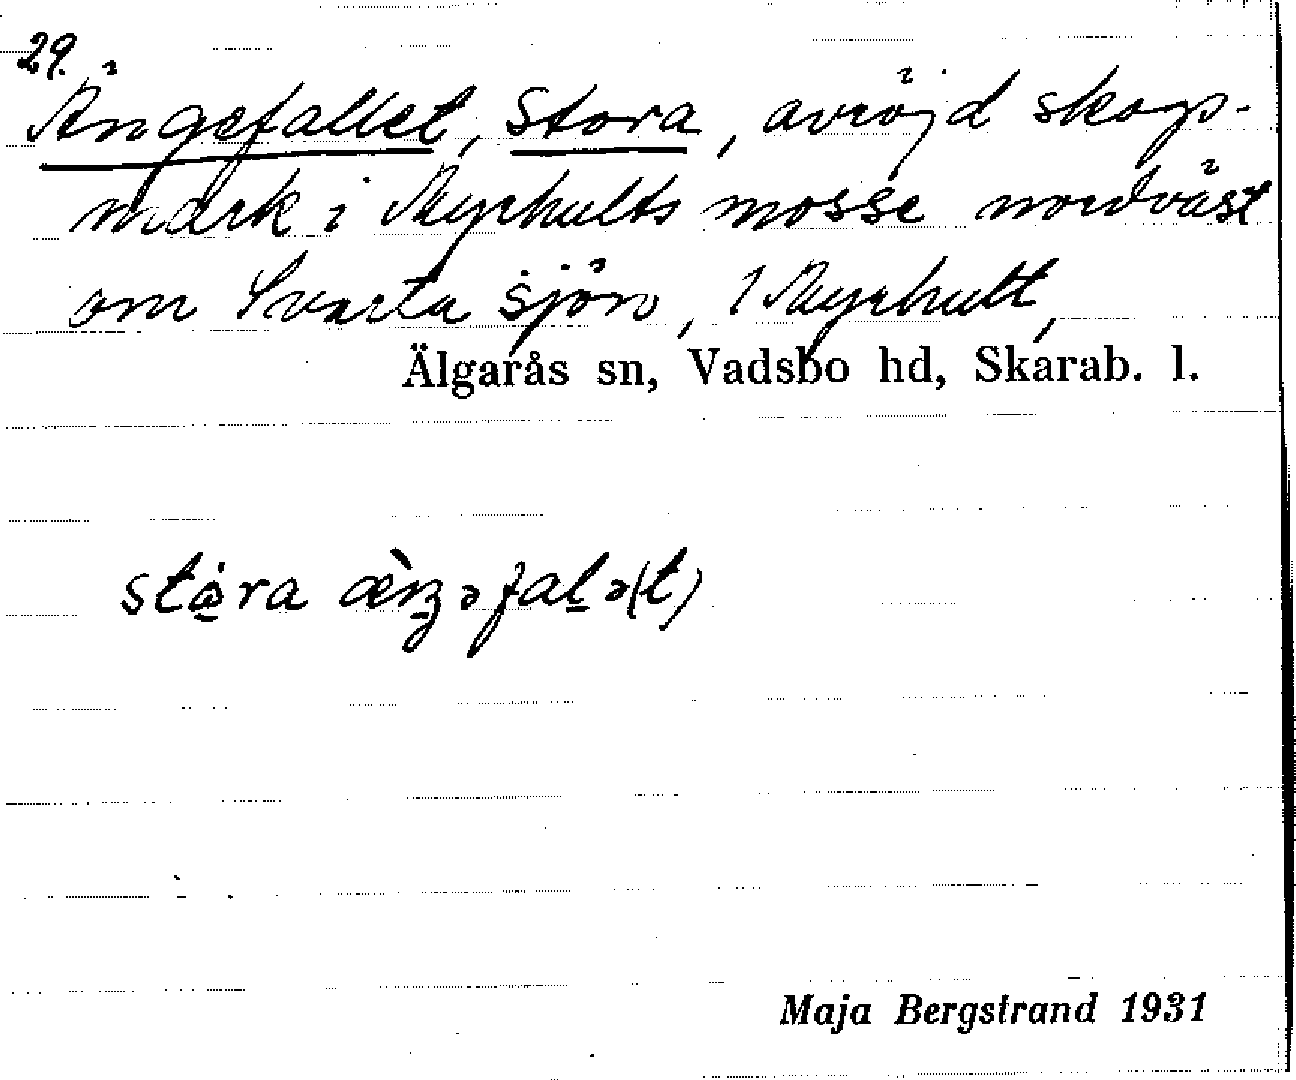 29.
Ängefallet, Stora, avröjd skogs-
mark i Myrhults mosse nordväst
om Svarta sjön, 1 Myrhult,
Älgarås sn, Vadsbo hd, Skarab. l.
stɷ̀ra æ̀ŋəfalə(t)
Maja Bergstrand 1931